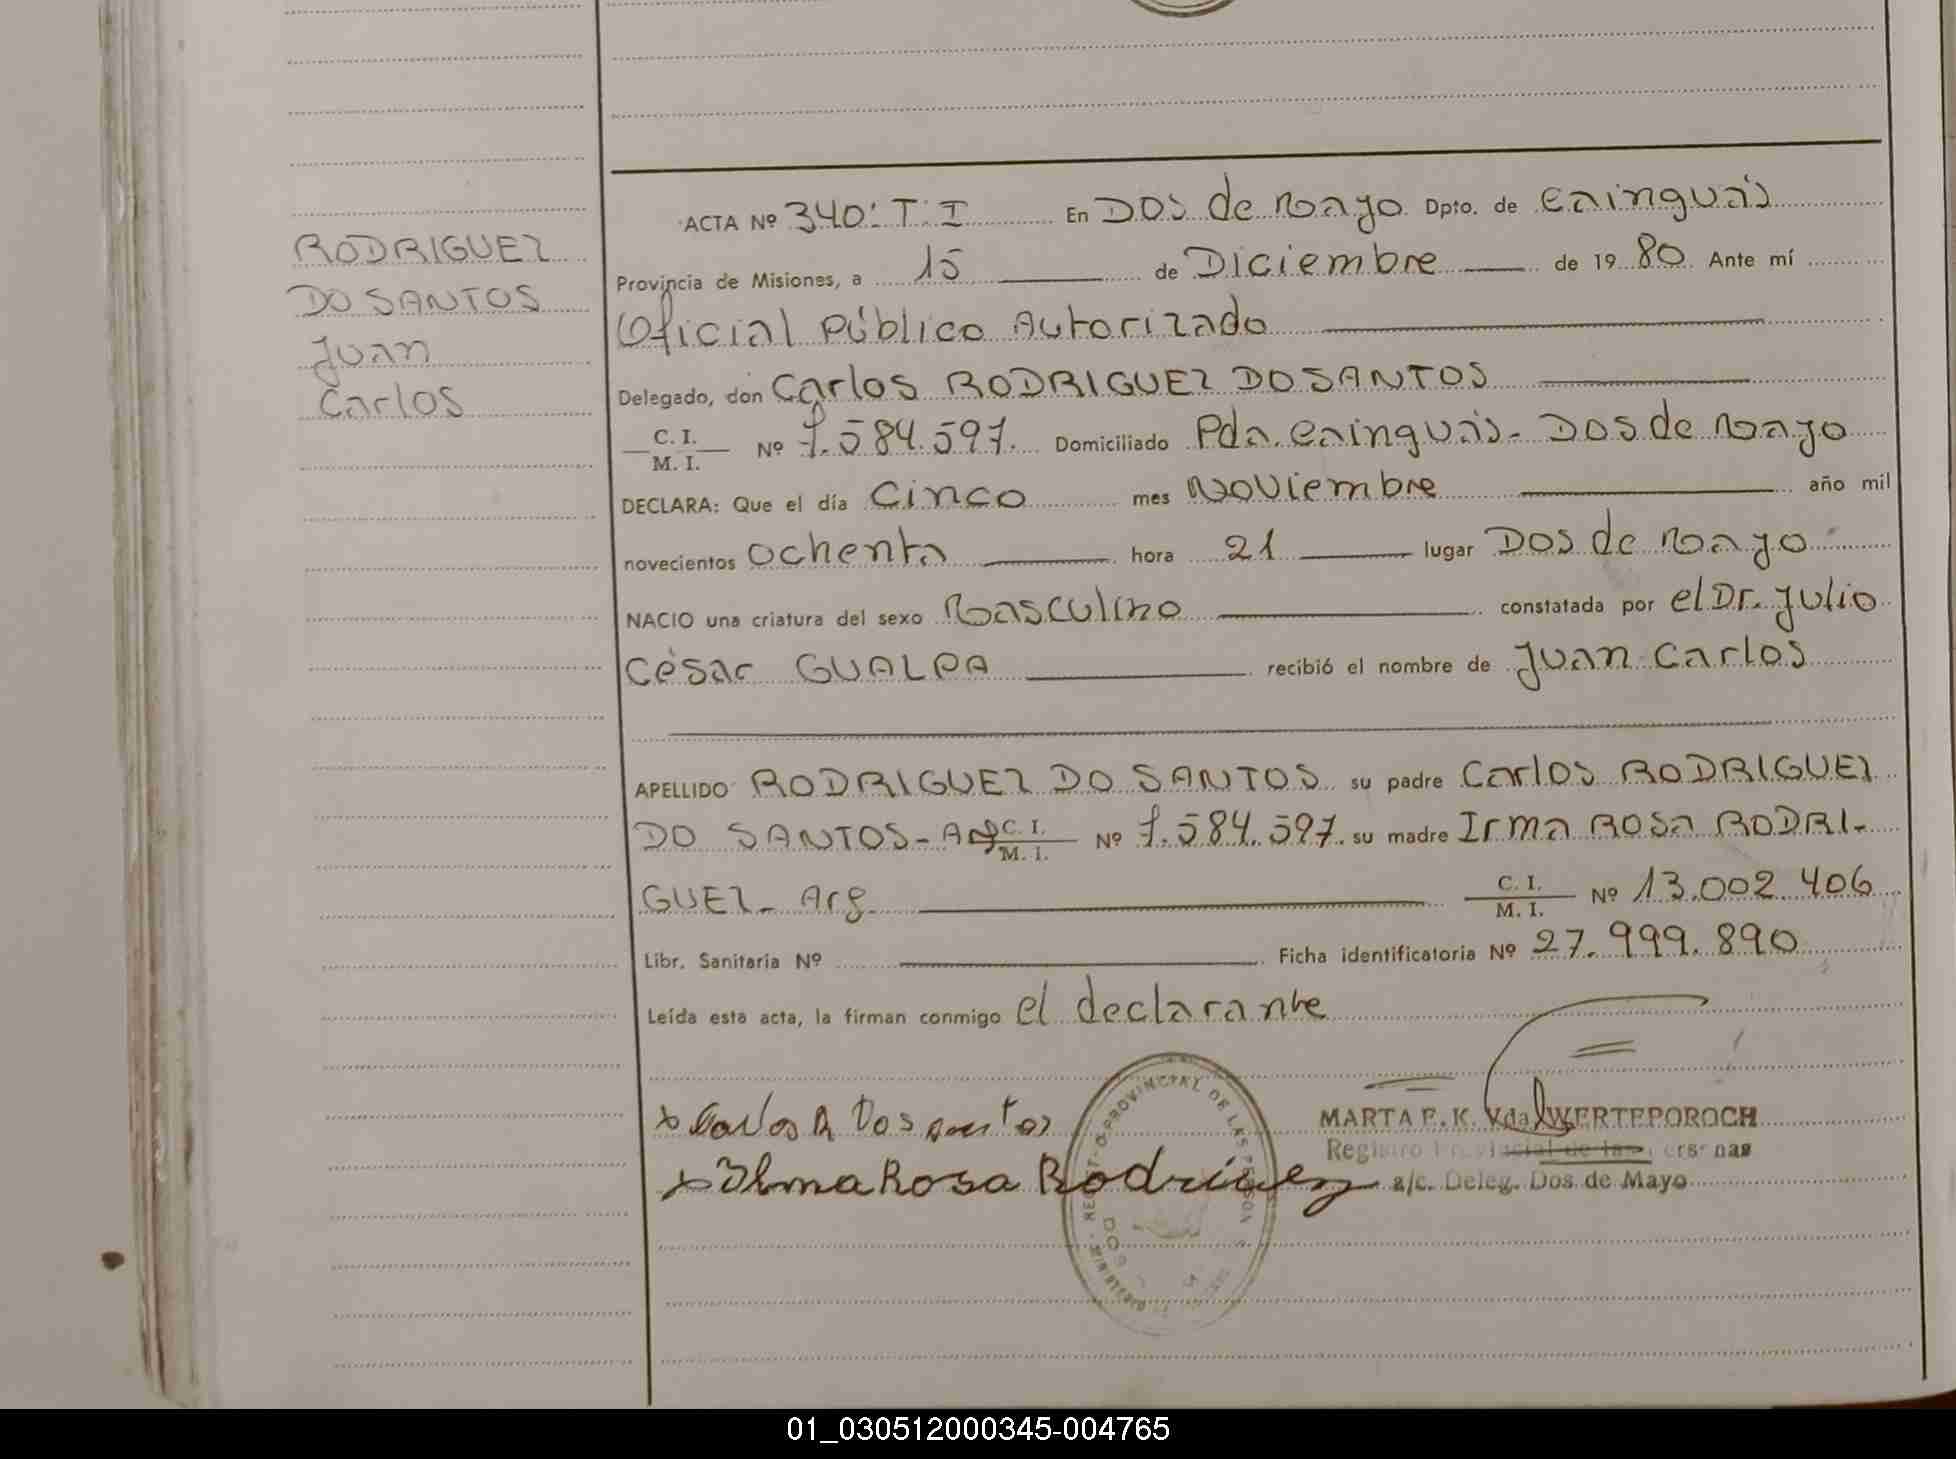 RODRIGUEZ
DO SANTOS
Juan
Carlos
ACTA Nº 340: T: I En Dos de Mayo Dpto. de Cainguás
Provincia de Misiones, a 15 de Diciembre de 19 80 Ante mí
Oficial Público Autorizado
Delegado, don Carlos RODRIGUEZ DO SANTOS
C. I.
M. I. Nº 7.584.597. Domiciliado Pda. Cainguás - Dos de Mayo
DECLARA: Que el día Cinco mes Noviembre año mil
novecientos Ochenta hora 21 lugar Dos de Mayo
NACIO una criatura del sexo Masculino constatada por el Dr. Julio
César GUALPA recibió el nombre de Juan Carlos
APELLIDO RODRIGUEZ DO SANTOS su padre Carlos RODRIGUEZ
DO SANTOS - Arg C. I. M. I. Nº 7.584.597. su madre Irma Rosa RODRI-
GUEZ - Arg C. I. M. I. Nº 13.002.406
Libr. Sanitaria Nº Ficha identificatoria Nº 27.999.890
Leída esta acta, la firman conmigo el declarante
x Carlos R Dos santos
x Irma Rosa Rodriguez
MARTA E. K. Vda WERTEPOROCH
Registro Provincial de las Personas
a/c. Deleg. Dos de Mayo
01_030512000345-004765